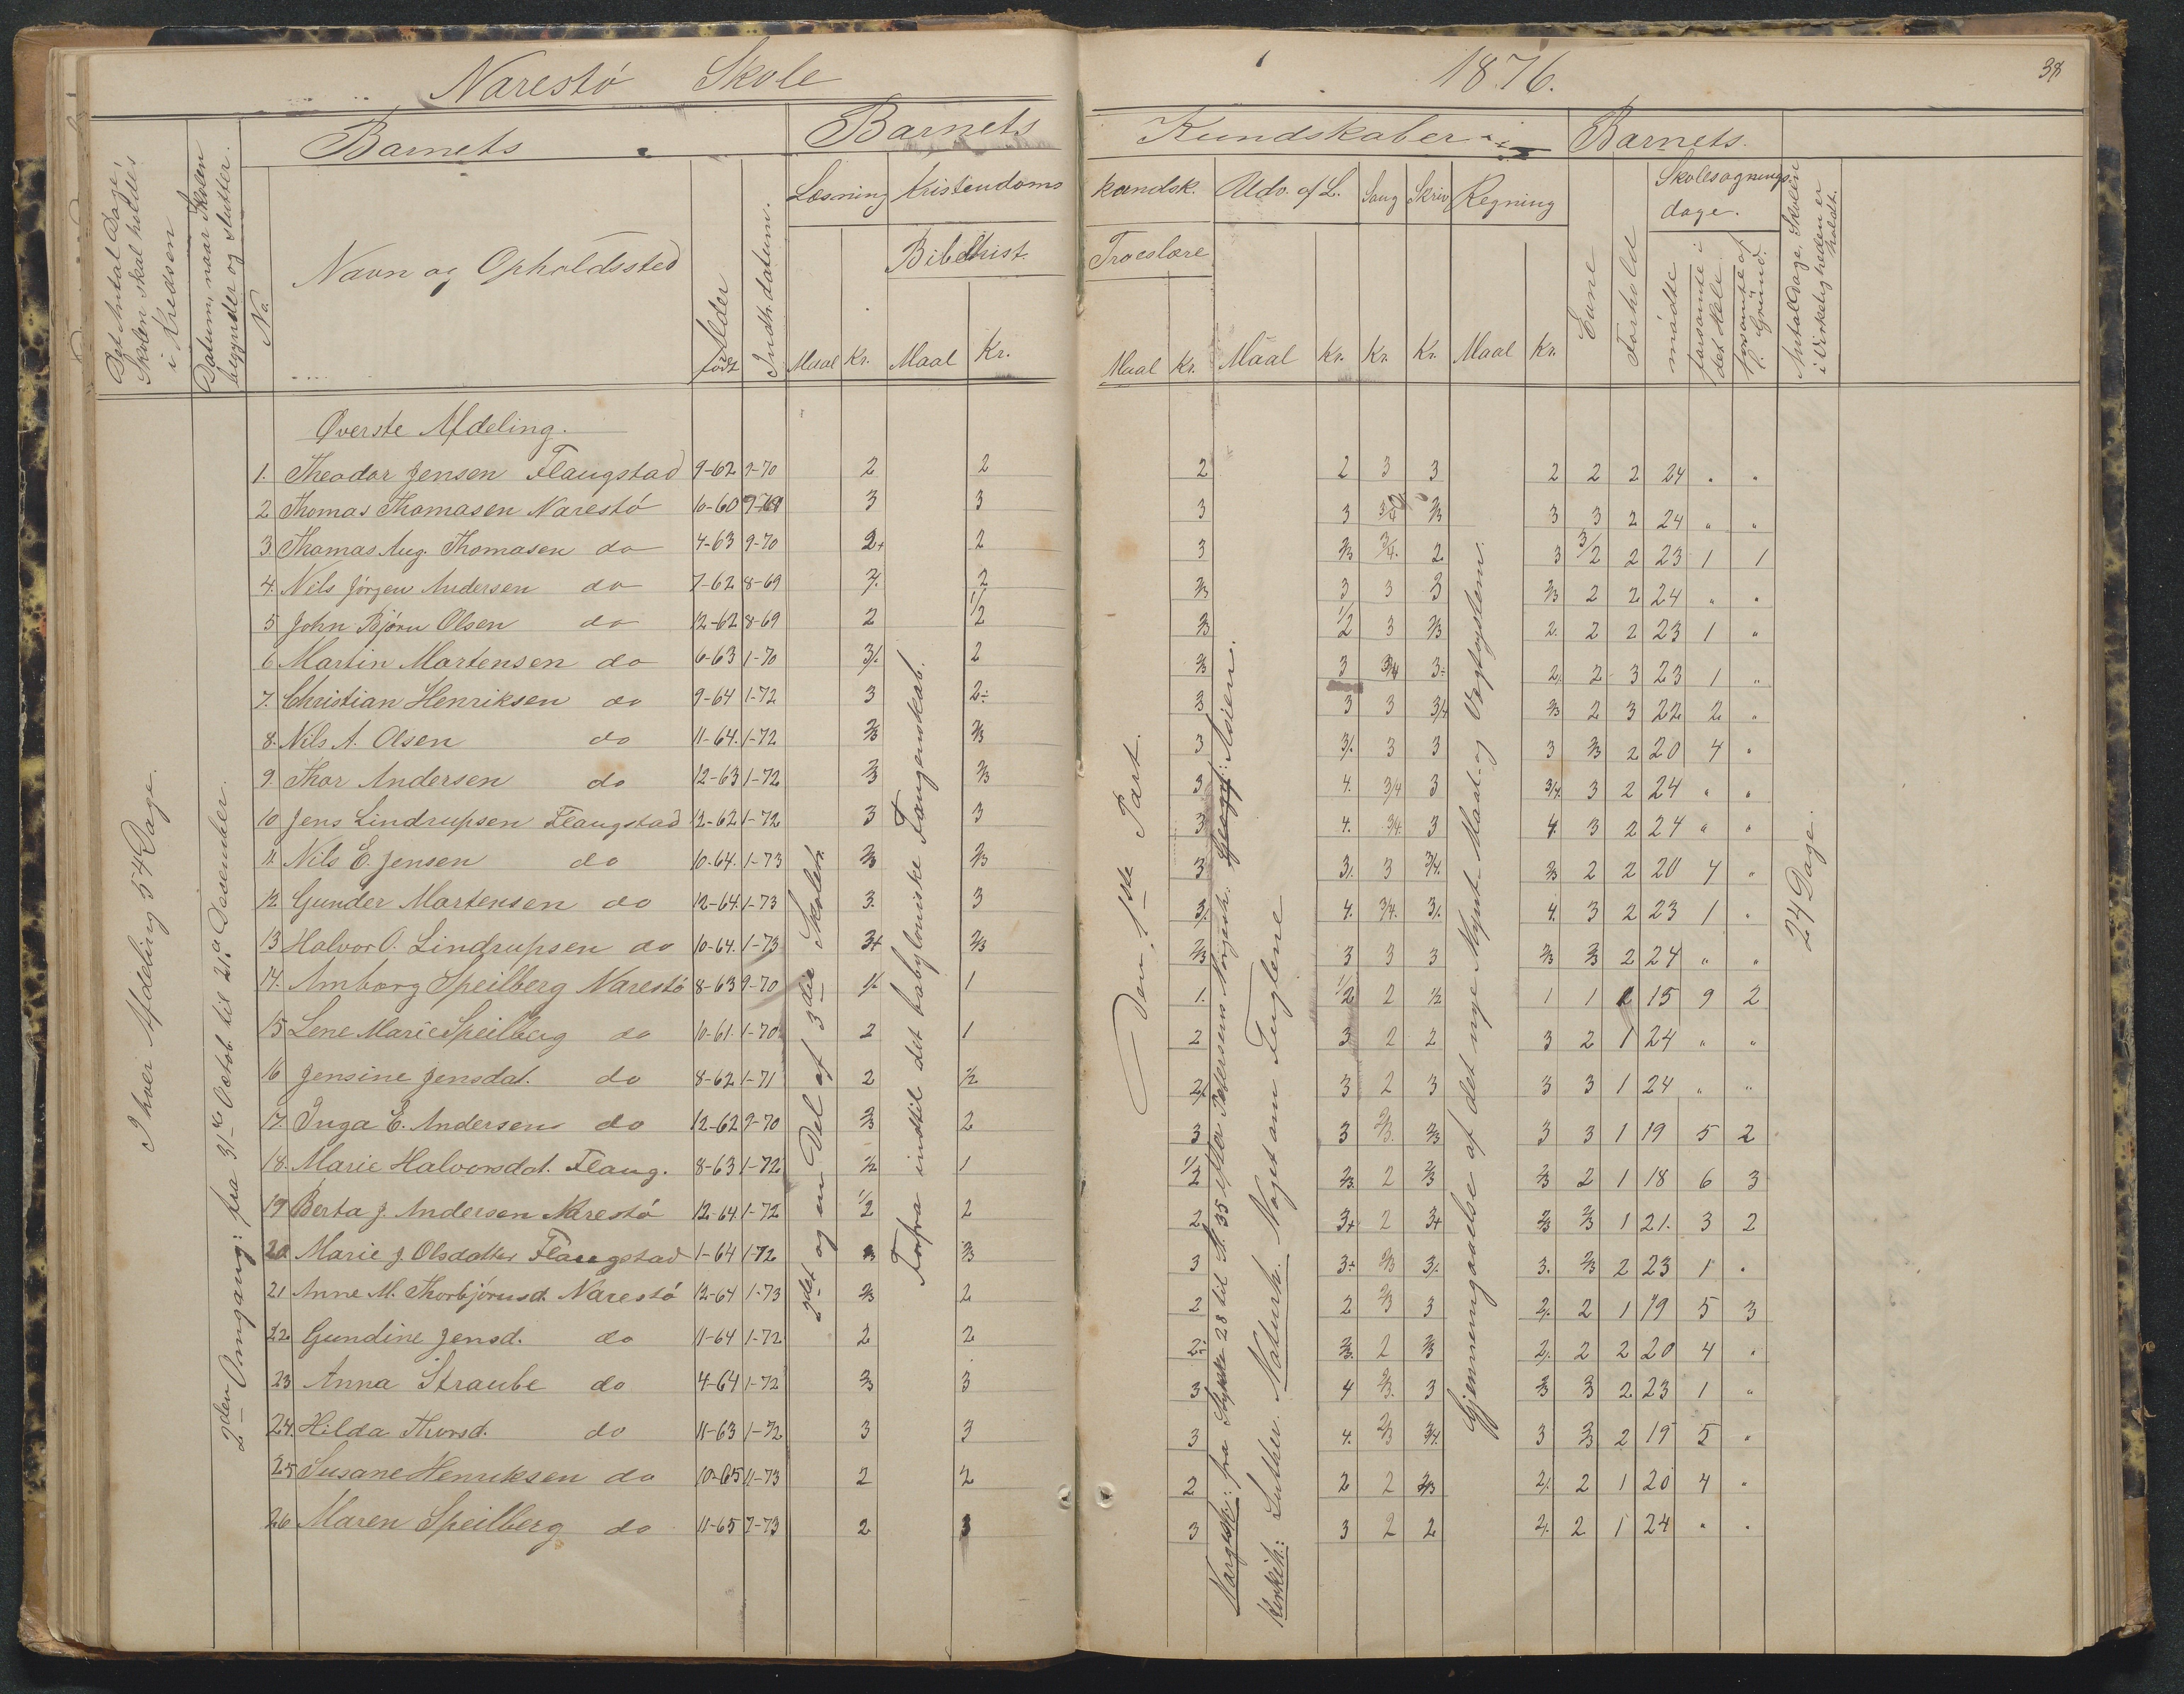 Narestö Skole
1876.
Barnets
Barnets
Kundskaber i
Barnets.
Det Antal Dage,
Skolen skal holdes
i Kredsen
Datum, naar Skolen
begynder og slutter.
No.
Navn og Opholdssted
Alder
født
Indtr. datum.
Læsning
Kristendoms
kundsk.
Udv. af L.
Sang
Skriv
Regning
Evne
Forhold
Skolesøgnings-
dage.
Bibelhist.
Troeslære
mødte
forsømte i
det Hele
forsømte af
Grund.
Antal Dage, Skolen
i Virkeligheden er
holdt.
Maal Kr. Maal Kr.
Maal Kr. Maal Kr. Kr. Kr. Maal Kr.
I hver Afdeling 54 Dage.
2den Omgang: fra 31te Octob. til 21. Decemher.
2det og en Del af 3die Skoletr.
Forfra indtil det babyloniske Fangenskab.
Den 1ste Part.
Norgesh.: fra Stykke 28 til St. 35 efter Petersens Norgesh. Geogrf: Asien.
Kirkeh: Luther. Naturh. Noget om Fuglene
Gjennemgaaelse af det nye Mynt- Maal- og Vegtsystem.
24 Dage.
Øverste Afdeling.
1. Theodor Jensen Flangstad 9-62 9-70 2 2 2 2 3 3 2 2 2 24 " "
2 Thomas Thomasen Narestö 10-60 3 3 3 3 2/3 3 3 2 24 " "
3 Thomas Aug. Thomasen do 4-63 9-70 2+ 2 3 2/3 3/4. 2 3 3/2 2 23 1 1
4. Nils Jörgen Andersen do 7-62 8-69 2 2/3 3 3 3 2/3 2 2 24 " "
5 John Björn Olsen do 12-62 8-69 2 1/2 2/3 1/2 3 2/3 2. 2 2 23 1 "
6 Martin Martensen do 6-63 1-70 3/. 2 2/3 3 3/4 3÷ 2/. 2 3 23 1 "
7. Christian Henriksen do 9-64 1-72 3 2÷ 3 3 3 3/4 2/3 2 3 22 2 "
8. Nils A. Olsen do 11-64. 1-72 2/3 2/3 3 3/. 3 3 3 2/3 2 20 4 "
9. Thor Andersen do 12-63 1-72 2/3 2/3 3 4. 3/4 3 3/4. 3 2 24 " "
10 Jens Lindrupsen Flangstad 12-62 1-72 3 3 3 4. 3/4 3 4. 3 2 24 " "
11. Nils E. Jensen do 10-64. 1-73 2/3 2/3 3 3/. 3 3/4. 2/3 2 2 20 4 "
12. Gunder Martensen do 12-64. 1-73 3. 3 3/. 4. 3/4. 3/. 4. 3 2 23 1 "
13 Halvor O. Lindrupsen do 10-64. 1-73 3+ 2/3 2/3 3 3 3 2/3 2/3 2 24 " "
14. Amborg Speilberg Narestö 8-63 9-70 1/. 1 1. 1/2 2 1/2 1 1 15 9 2
15 Lene Marie Speilberg do 10-61. 1-70 2 1 2 3 2 2 3 2 1 24 " "
16 Jensine Jensdat. do 8-62 1-71 2 1/2 2/. 3 2 3 3 3 1 24 " "
17. Inga E. Andersen do 12-62 9-70 2/3 2 3 3 2/3. 2/3 3 3 1 19 5 2
18. Marie Halvorsdat. Flang. 8-63 1-72 1/2 1 1/2 2/3. 2 2/3 2/3 2 1 18 6 3
19 Berta J. Andersen Narestö 12-64. 1-72 1/2 2 2 3+ 2 3+ 2/3 2/3 1 21. 3 2
20 Marie J. Olsdatter Flangstad 1-64 1-72 2/3 3 3+ 2/3 3/. 3. 2/3 2 23 1 "
21 Anne M. Thorbjörnsd. Narestö 12-64 1-73 2/3 2 2 2 2/3 3 2/. 2 1 19 5 3
22 Gundine Jensd. do 11-64 1-72 2 2 2÷ 2/3. 2 2/3 2/. 2 2 20 4 "
23 Anna Straube do 4-64 1-72 2/3 3 3 4 2/3. 3 2/3 3 2 23 1 "
24. Hilda Thorsd. do 11-63 1-72 3 3 3 4. 2/3 3/4. 3 2/3 2 19 5 "
25 Susane Henriksen do 10-65 11-73 2 2 2 2 2 2/3 2/. 2 1 20 4 "
26 Maren Speilberg do 11-65 7-73 2 3 3 3 2 2 2/. 2 1 24 " "